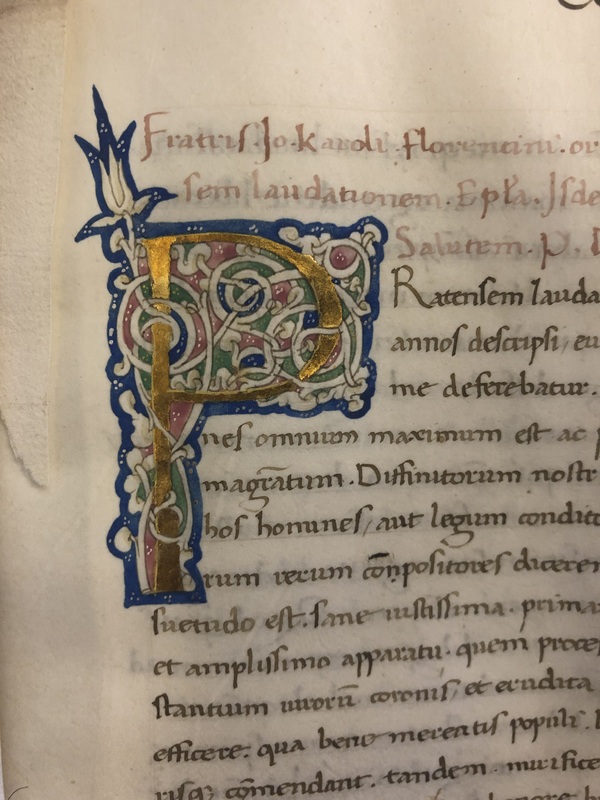 Fratris. Jo. Karoli. florentini. or
sem laudationem. Epl̃a. Jsde
Salutem. P. D
P Ratensem lauda
annos descripsi, eu
me deferebatur.
nes omnium maximum est ac p
magr̄atum. Diffinitorum nostr
hos homines, aut legum condito
rum rerum cōnpositores diceren
suetudo est. sane iustissima. prima
et amplissimo apparatu. quem proce
stantium uirorū coronis, et erudita
efficere. qua bene merentis populi.
risq; cōmendant. tandem. mirifice